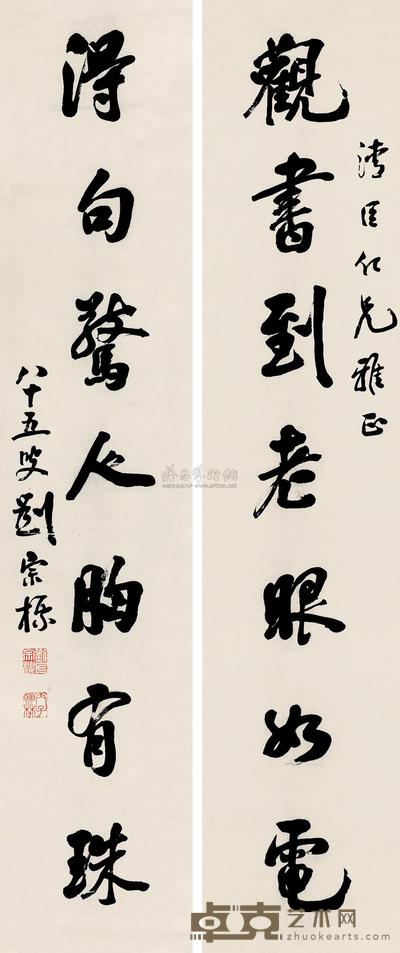 清臣仁兄雅正
觀書到老眼如電
得句驚人胸有珠
八十五叟劉宗標
卓克艺术网
zhuokearts.com